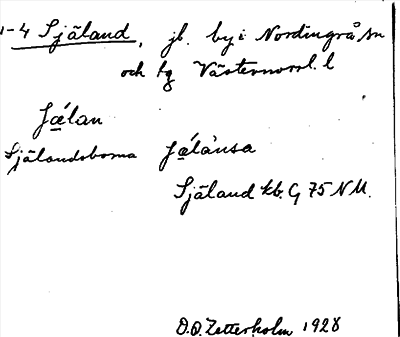 1-4 Själand, jb. by i Nordingrå sn
och tg Västernorrl. l
Jǽlan
Själandsborna Jǽlànsa
Själand kb. G 75 NM.
O.O. Zetterholm 1928